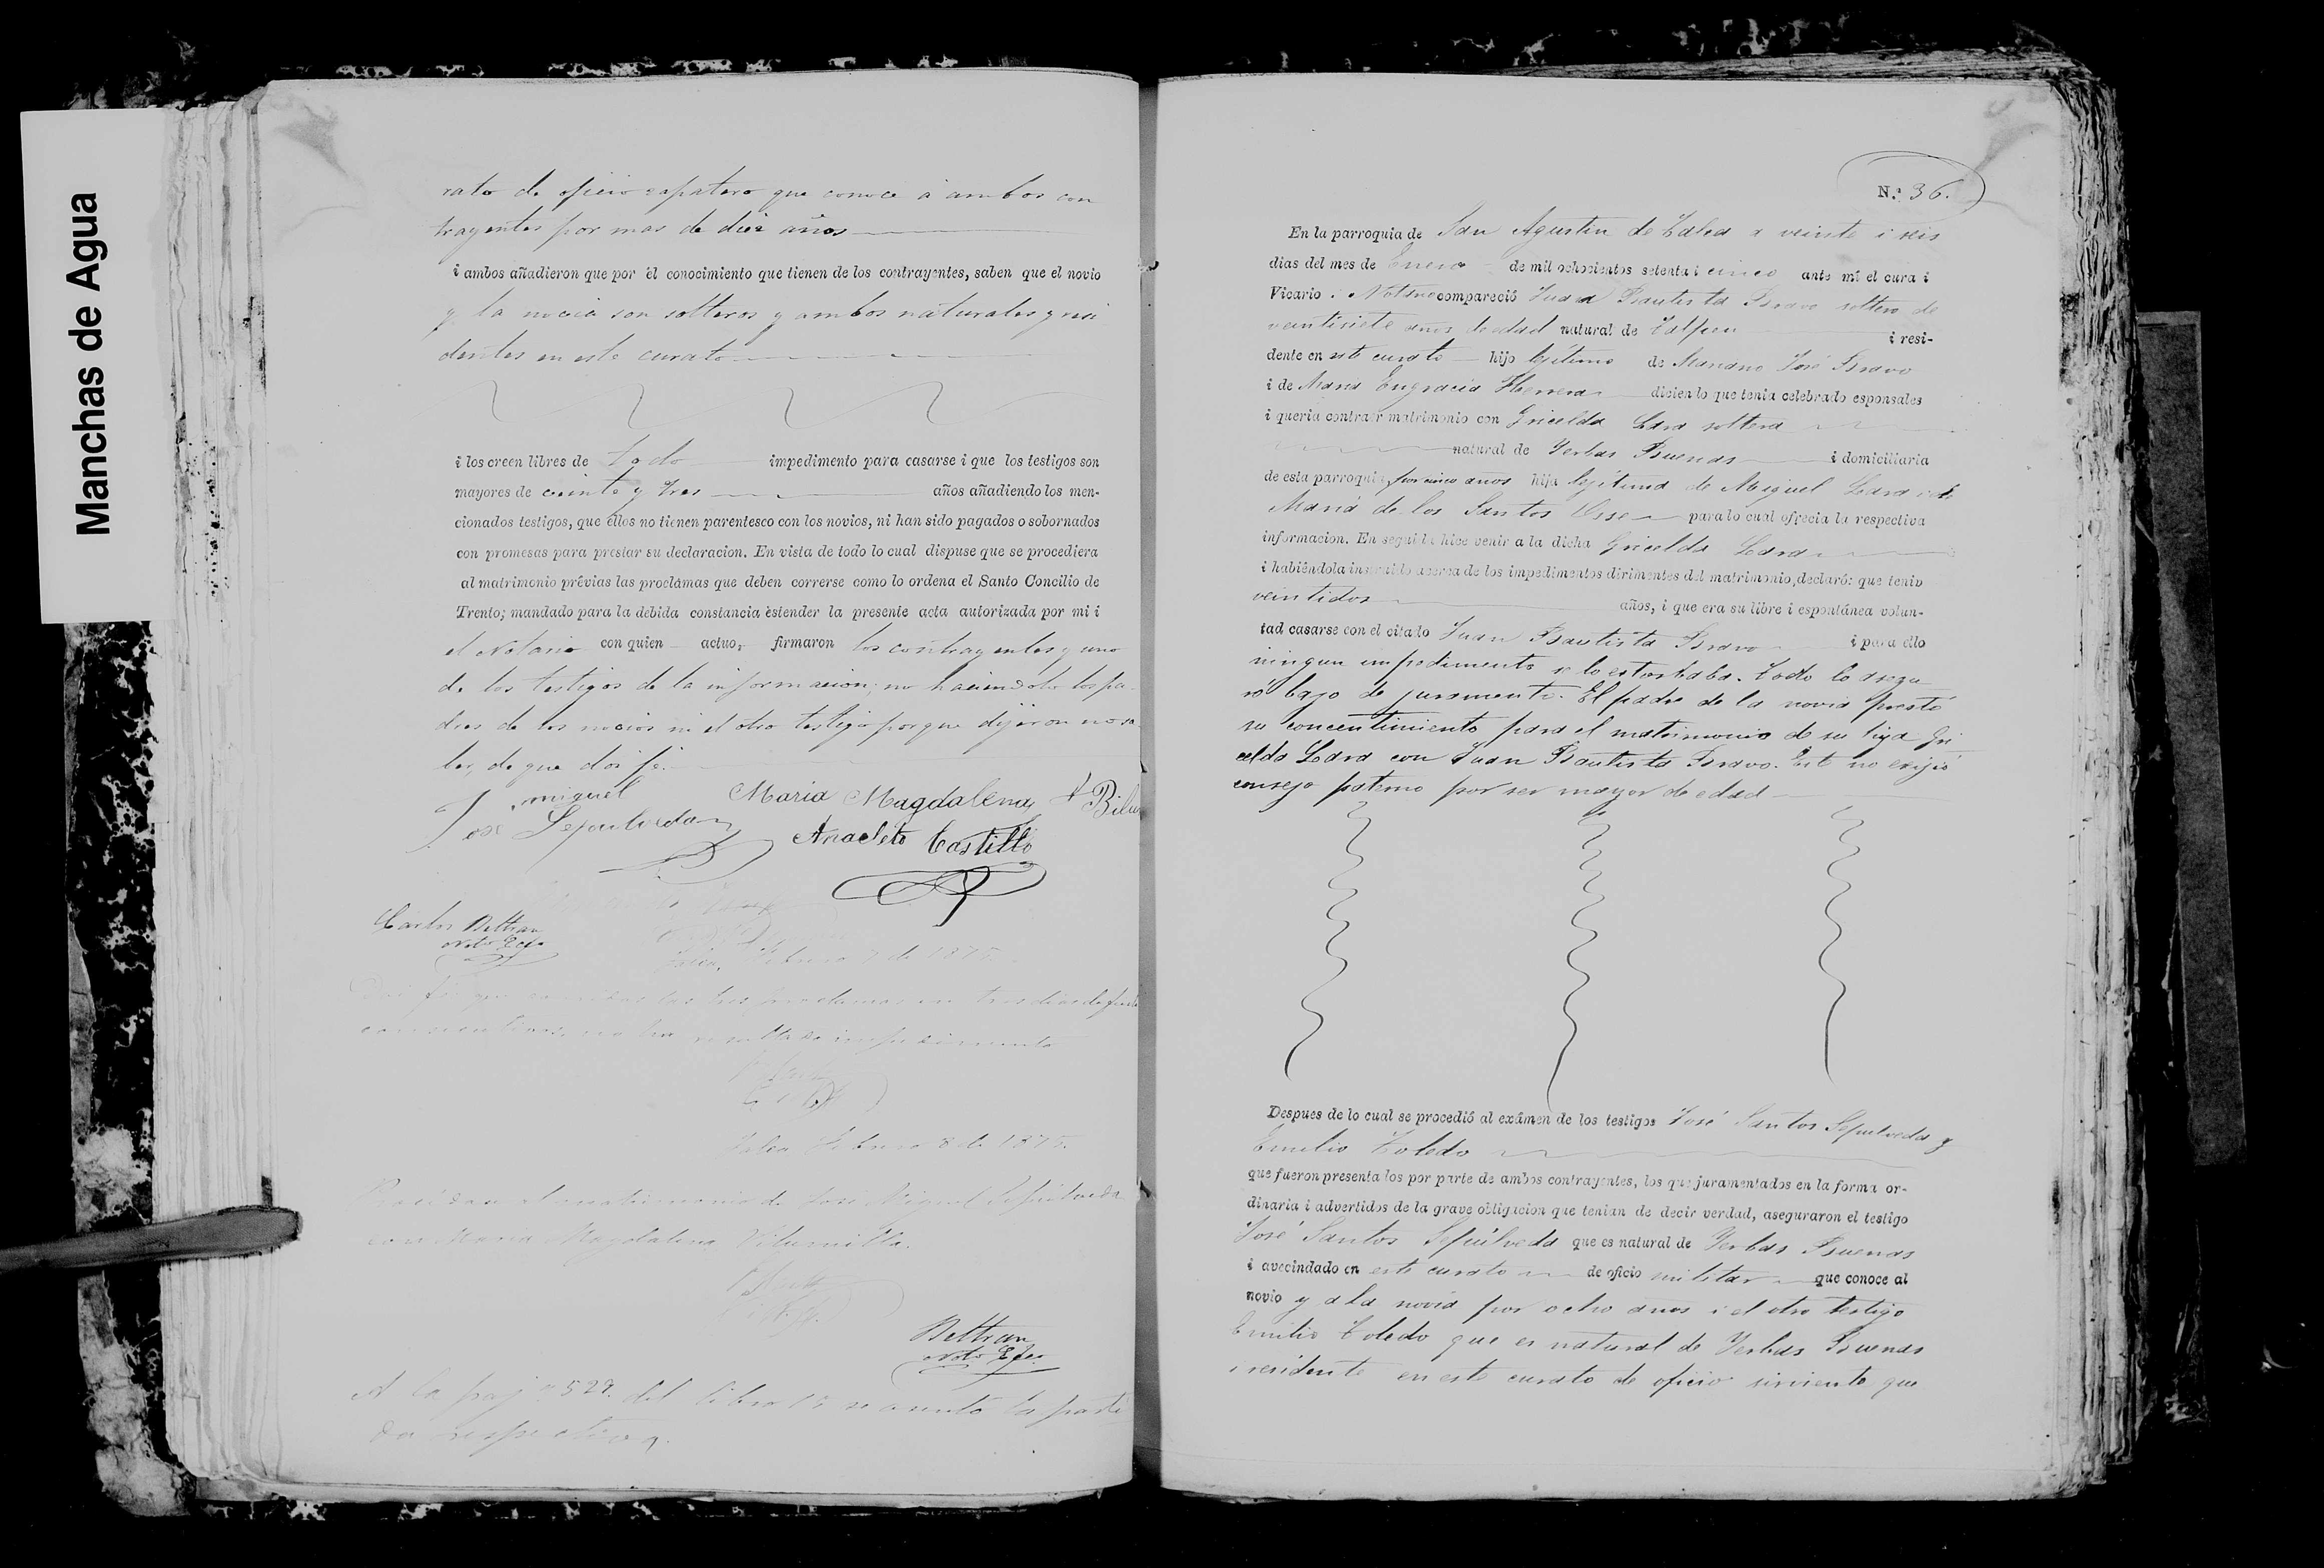 Manchas de Agua
rato de oficio zapatero que conoce á ambos con
trayentes por mas de diez años
i ambos añadieron que por el conocimiento que tienen de los contrayentes, saben que el novio
y la novia son solteros y ambos naturales y resi
dentes en este curato
i los creen libres de todo impedimento para casarse i que los testigos son
mayores de veinte y tres años añadiendo los men-
cionados testigos, que ellos no tienen parentesco con los novios, ni han sido pagados o sobornados
con promesas para prestar su declaracion. En vista de todo lo cual dispuse que se procediera
al matrimonio prévias las proclamas que deben correrse como lo ordena el Santo Concilio de
Trento; mandado para la debida constancia estender la presente acta autorizada por mi i
el Notario con quien actuo, firmaron los contrayentes y uno
de los testigos de la informacion; no haciendolo los pa-
dres de los novios ni el otro testigo porque dijeron no sa
ber, de que doi fé.
José miguel Sepulveda
Maria Magdalena
Anacleto Castillo
Carlos Beltran
Talca, Febrero 7 de 1875.
Doi fé que corridas las tres proclamas en tres dias
no ha resultado impedimento
Talca Febrero 8 de 1875.
el matrimonio de José Miguel Sepúlveda
con Maria Magdalena
Beltran
A la paj.ª 529. del libro se asentó la parti
da respectiva.
N.º 36.
En la parroquia de San Agustin de Talca a veinte i seis
dias del mes de Enero de mil ochocientos setenta i cinco ante mí el cura i
Vicario i Notario compareció Juan Bautista Bravo soltero de
veintisiete años de edad natural de i resi-
dente en este curato hijo lejítimo de Mariano José Bravo
i de Maria Engracia Herrera diciendo que tenia celebrado esponsales
i queria contraer matrimonio con Gricelda Lara soltera
natural de Yerbas Buenas i domiciliaria
de esta parroquia por cinco años hija lejítima de Miguel Lara i de
Maria de los Santos para lo cual ofrecia la respectiva
informacion. En seguida hice venir a la dicha Gricelda Lara
i habiéndola instruido acerca de los impedimentos dirimentes del matrimonio, declaró: que tenia
veintidos años, i que era su libre i espontánea volun-
tad casarse con el citado Juan Bautista Bravo i para ello
ningun impedimento se lo estorbaba. Todo lo asegu
ró bajo de juramento. El padre de la novia prestó
su concentimiento para el matrimonio de su hija Gri
celda Lara con Juan Bautista Bravo. Este no exijió
consejo paterno por ser mayor de edad
Despues de lo cual se procedió al exámen de los testigos José Santos Sepulveda y
Emilio Toledo
que fueron presentados por parte de ambos contrayentes, los que juramentados en la forma or-
dinaria i advertidos de la grave obligacion que tenian de decir verdad, aseguraron el testigo
José Santos Sepúlveda que es natural de Yerbas Buenas
i avecindado en este curato de oficio militar que conoce al
novio y a la novia por ocho años i el otro testigo
Emilio Toledo que es natural de Yerbas Buenas
i residente en este curato de oficio sirviente que